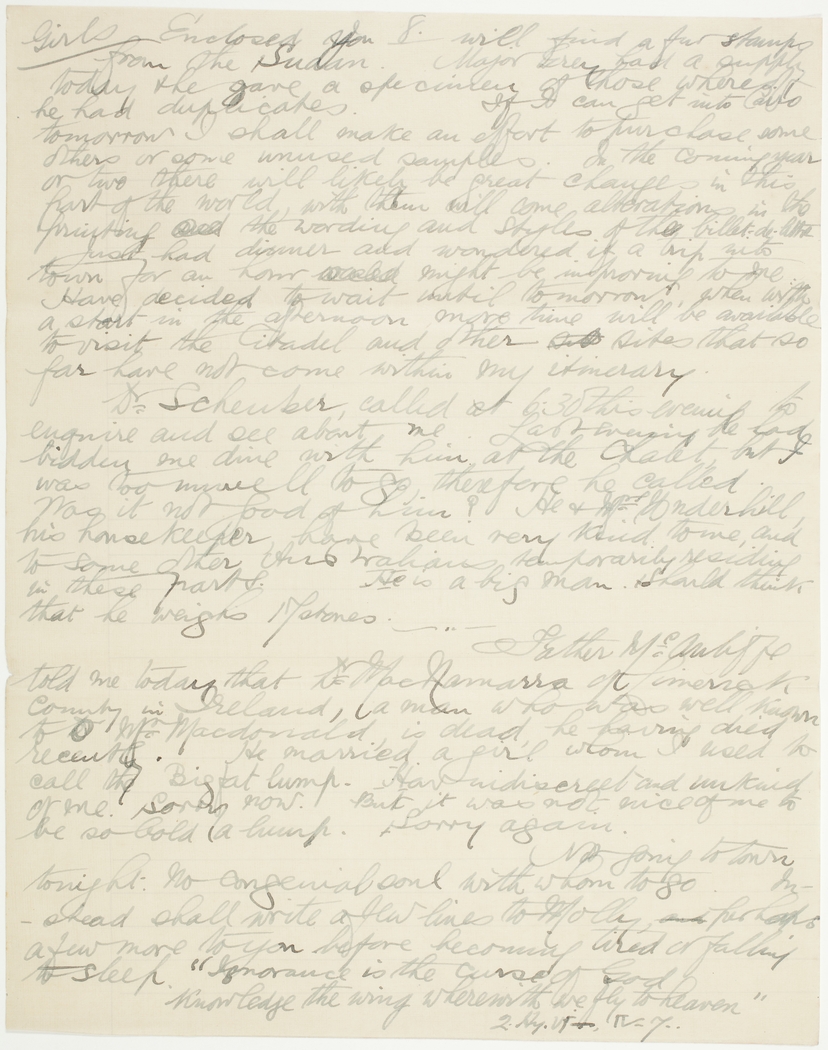 Girls Enclosed you 8. will find a few stamps
from the Sudan. Major Grey had a supply
today & he gave a specimen of those whereof
he had duplicates. If I can get into Cairo
tomorrow I shall make an effort to purchase some
others or some unused samples. In the coming year
or two there will likely be great changes in this
part of the world, with them will come alterations in the
printing and the wording and styles of the billet-de-
Just had dinner and wondered if a trip into
town for an hour might be improving to me.
Have decided to wait until tomorrow, when with
a start in the afternoon more time will be available
to visit the Citadel and other sites that so
far have not come within my itinerary.
Dr Scheuber, called at 6.30 this evening to
enquire and see about me. Last evening he had
bidden me dine with him at the Chalet, but I
was too unwell to go, therefore he called.
Was it not good of him? He & Mrs Underhill,
his housekeeper, have been very kind to me, and
to some other Australians temporarily residing
in these parts. He is a big man. Should think
that he weighs 17 stones.
Father McAuliffe
told me today that Dr MacNamarra of Limerick
County in Ireland, (a man who was well known
to Dr Macdonald, is dead, he having died
recently. He married a girl whom I used to
call the Big fat lump. How indiscreet and unkind
of me. Sorry now. But it was not nice of me to
be so bold (a lump. Sorry again.
Not going to town
tonight. No congenial soul with whom to go. In-
-stead shall write a few lines to Molly, perhaps
a few more to you before becoming tired or falling
to sleep. "Ignorance is the curse of God
Knowledge the wing wherewith we fly to heaven"
2. Hy. VI, IV-7.